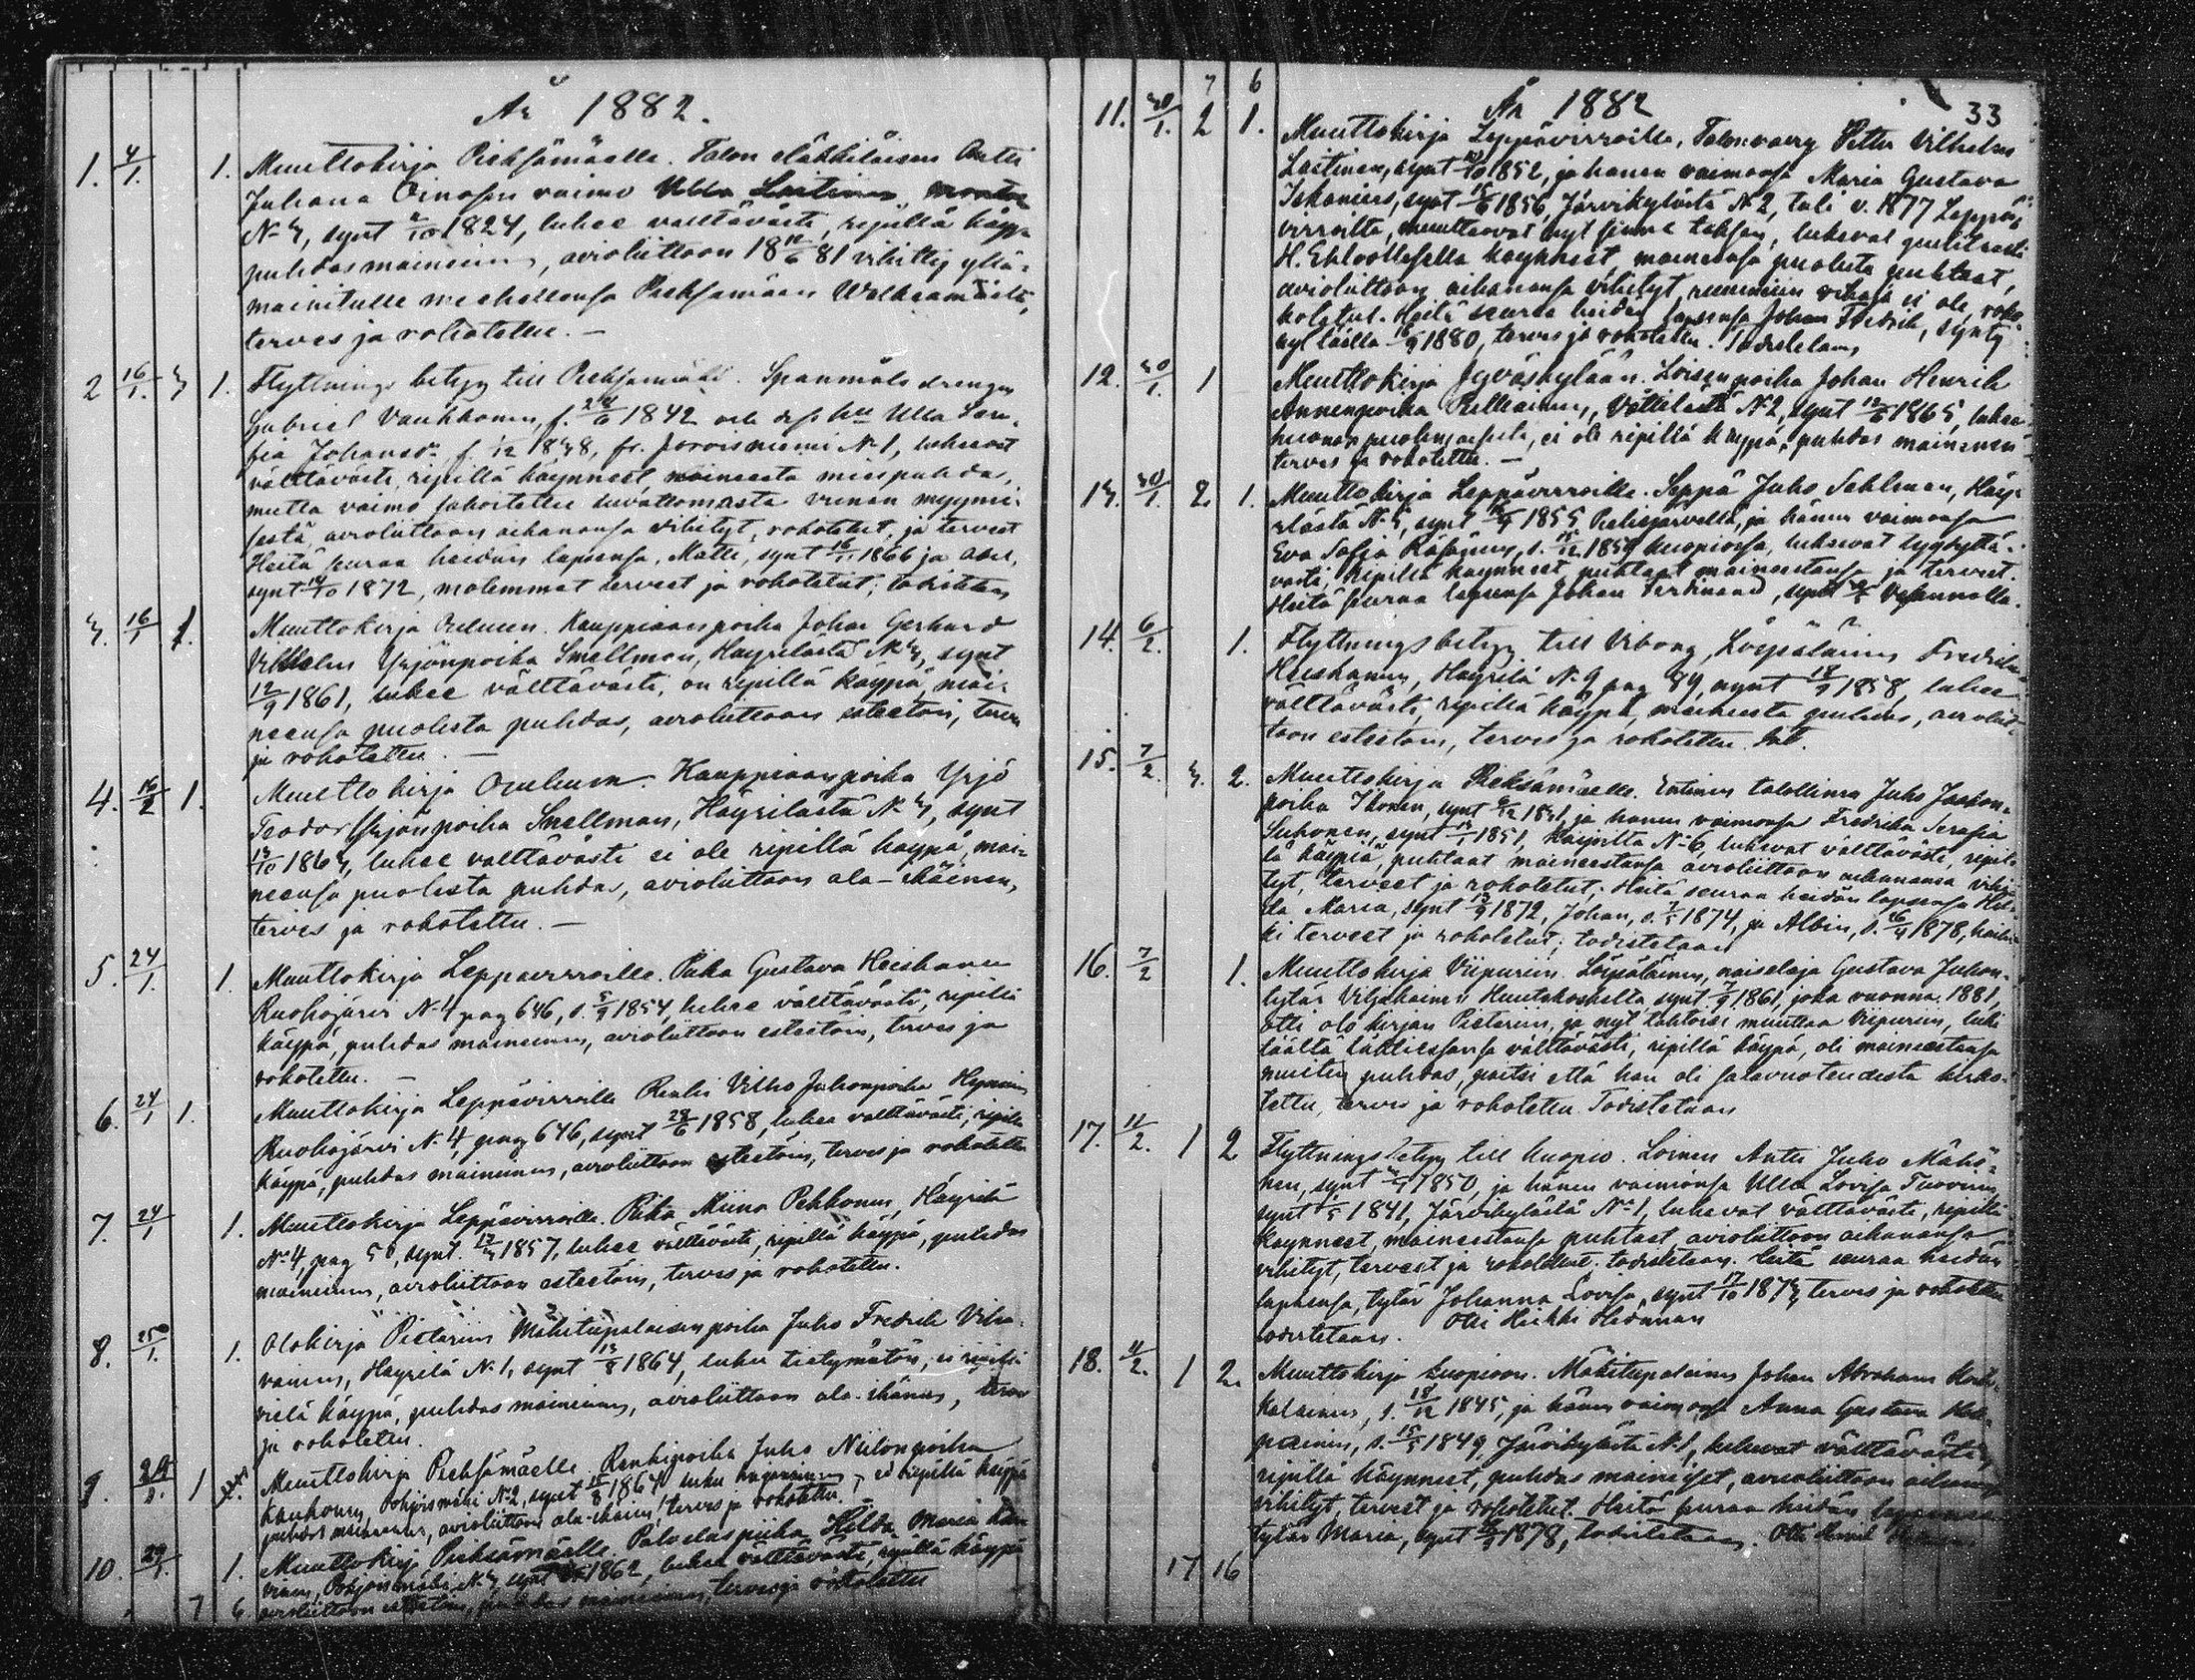 År 1882.
1. 4/1. 1. Muuttokirja Pieksämäelle. Talon eläkkiläisen Antti
Juhana Oinosen vaimo
synt 1824, lukee välttävästi, ripillä käypä
puhdas maineinen, avioliittoon 18 81 vihitty yllä-
mainitulle miehellensä Pieksämäen
terves ja rokotettu. —
2 16/1. 3 1. Flyttnings betyg till Pieksämäki. Spanmåls drengen
Gabriel Vaukkonen, f. 1842 och dess hu Ulla So-
fia Johansdr f. 1/12 1838, fr. Joroisniemi No 1, lukevat
välttävästi, ripillä käynneet, maineesta mies puhdas,
mutta vaimo sakoitettu luvattomasta viinan myymi-
sestä, avioliittoon aikanansa vihityt, rokotetut, ja terveet
Heitä seuraa heidän lapsensa, Matti, synt 1866 ja
synt 1872, molemmat terveet ja rokotetut; todistetaan
3. 16/1 1. Muuttokirja Ouluun. Kauppiaanpoika Johan Gerhard
Vilhelm Yrjönpoika Snellman, Häyrilästä No 3, synt
12/9 1861, lukee välttävästi, on ripillä käypä, mai-
neensa puolesta puhdas, avioliittoon esteetön, terves
ja rokotettu. —
4. 16/2 1. Muuttokirja Ouluun. Kauppiaanpoika Yrjö
Teodor Yrjönpoika Snellman, Häyrilästä No 3, synt
13/10 1863, lukee välttävästi ei ole ripillä käypä, mai-
neensa puolesta puhdas, avioliittoon ala-ikäinen,
terves ja rokotettu. —
5. 24/1. 1. Muuttokirja Leppävirroille. Piika Gustava Heiskanen
Ruokojärvi No 4 pag 646, s. 5/9 1854, lukee välttävästi, ripillä
käypä, puhdas maineinen, avioliittoon esteetöin, terves ja
rokotettu. —
6. 24/1 1. Muuttokirja Leppävirroille Renki Vilho Juhonpoika Hyvönen
Ruokojärvi No 4, pag 646, synt 28/6 1858, lukee välttävästi, ripillä
käypä, puhdas maineinen, avioliittoon esteetöin, terves ja rokotettu
7. 24/1 1. Muuttokirja Leppävirroille. Piika Miina Pekkonen, Häyrilä
No 4, pag 50, synt. 1857, lukee välttävästi, ripillä käypä, puhdas
maineinen, avioliittoon esteetöin, terves ja rokotettu.
8. 25/1. 1. Olokirja Pietariin Mäkitupalaisen poika Juho Fredrik
Häyrilä No 1, synt 13/8 1864, lukee ei ripillä
vielä käypä, puhdas maineinen, avioliittoon ala-ikäinen, terves
ja rokotettu.
9. 1 Muuttokirja Pieksämäelle. Renkipoika Juho Niilonpoika
Kaukonen, No 2, synt 15/8 1864 ei ripillä käypä
puhdas maineinen, avioliittoon ala-ikäinen, terves ja rokotettu.
10. 29/1. 1. Muuttokirja Pieksämäelle. Palveluspiika Hilda Maria
synt 1862, lukee välttävästi, ripillä käypä
avioliittoon esteetöin, puhdas maineinen, terves ja rokotettu
7 6
7 6
År 1882 33
11. 30/1. 2 1. Muuttokirja Leppävirroille, Talonvävy Petter Vilhelm
Laitinen, synt 1852, ja hänen vaimonsa Maria Gustava
synt 1856, Järvikylästä No 2, tuli v. 1877 Leppä-
virroilta, muuttavat nyt sinne takasin, lukevat
käynneet, maineensa puolesta puhtaat,
avioliittoon aikanansa vihityt, ei ole, roko-
kotetut. Heitä seuraa heidän lapsensa Johan Fredrik, synty-
nyt täällä 1880, terves ja rokotettu. Todistetaan
12. 30/1. 1 Muuttokirja Jyväskylään. Loisen poika Johan Henrik
Annanpoika Pulkkinen, No 2, synt 1865, lukee
ei ole ripillä käypä, puhdas maineinen
terves ja rokotettu. —
13. 30/1. 2 1. Muuttokirja Leppävirroille. Seppä Juho Sahlman, Häy-
rilästä synt 1855 Pielisjärvellä, ja hänen vaimonsa
Eva Sofia Räsänen, s. Kuopiossa, lukevat tyydyttä-
västi, ripillä käynneet, puhtaat maineestansa ja terveet.
Heitä seuraa lapsensa Johan Ferdinand, synt Vesannolla.
14. 6/2. 1. Flyttningsbetyg till Viborg, Fredrika
Heiskanen, Häyrilä No 9 pag 89, synt 18/9 1858, lukee
välttävästi, ripillä käypä, maineesta puhdas, avioliit-
toon esteetöin, terves ja rokotettu.
15. 7/2. 3. 2. Muuttokirja Pieksämäelle. Entinen talollinen Juho Jaakon-
poika Ikonen, synt ja hänen vaimonsa Fredrika Serafia
Suhonen, synt 1851, No 6, lukevat välttävästi, ripil-
lä käypiä, puhtaat maineestansa avioliittoon aikanansa vihi-
tyt, terveet ja rokotetut; Heitä seuraa heidän lapsensa Hil-
da Maria, synt 13/9 1872, Johan, s. 7/5 1874, ja Albin, s. 1878, kaik-
ki terveet ja rokotetut; todistetaan
16. 7/2 1. Muuttokirja Viipuriin. naiseläjä Gustava Juhon-
tytär Viljakainen Huutokoskelta synt. 1861, joka vuonna 1881,
otti olokirjan Pietariin, ja nyt tahtoisi muuttaa Viipuriin, luki
täältä lähtiessänsä välttävästi, ripillä käypä, oli maineestansa
muiten puhdas, paitsi että hän oli salavuoteudesta
tettu, terves ja rokotettu. Todistetaan
17. 11/2. 1 2 Flyttningsbetyg till Kuopio. Loinen Antti Juho Mähö-
nen, synt 1850, ja hänen vaimonsa Ulla Lovisa Tuovinen
synt 1841, Järvikylästä No 1, lukevat välttävästi, ripillä
käynneet, maineestansa puhtaat, avioliittoon aikanansa
vihityt, terveet ja rokotetut. todistetaan. Heitä seuraa heidän
lapsensa, tytär Johanna Lovisa, synt 17/10 1873, terves ja rokotettu
todistetaan. Otti Heikki
18. 11/2. 1 2. Muuttokirja Kuopioon. Mäkitupalainen Johan Abraham
s. 18/12 1845, ja hänen vaimonsa Anna Gustava
s. 15/5 1849, Järvikylästä No 1, lukevat välttävästi,
ripillä käynneet, puhdas maineiset, avioliittoon
vihityt, terveet ja rokotetut. Heitä seuraa heidän
tytär Maria, synt 1878, todistetaan. Otti
17 16